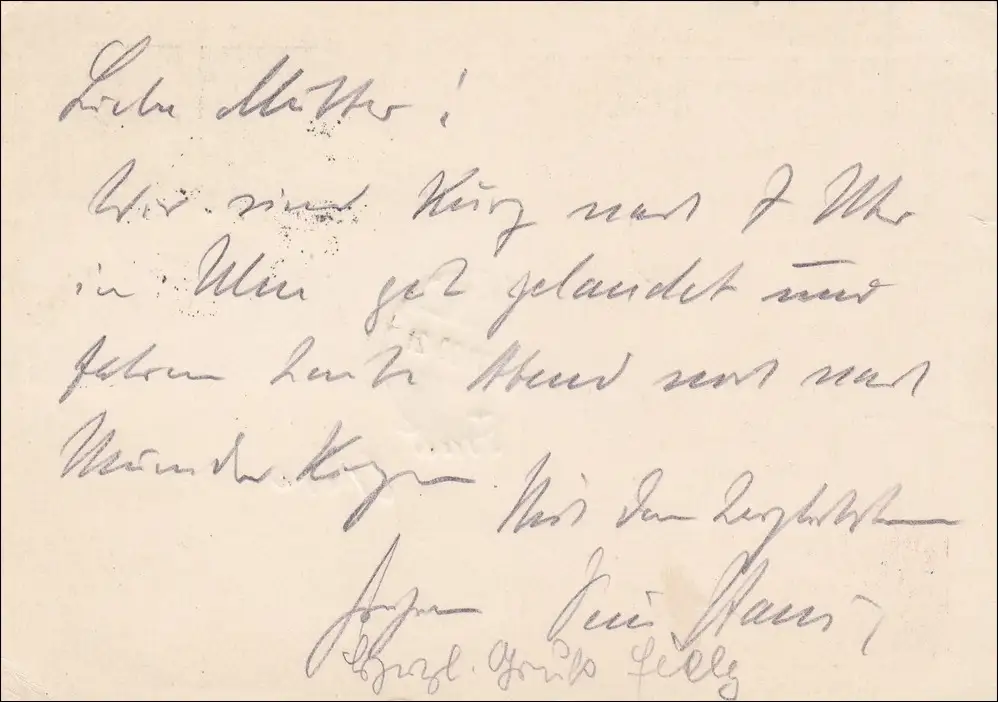 Liebe Mutter!
Wir sind Kurz nach 7 Uhr
in Ulm gut gelandet und
fahren heute Abend noch nach
Mit den herzlichsten
Grüßen Dein Hans
Herzl. Gruß